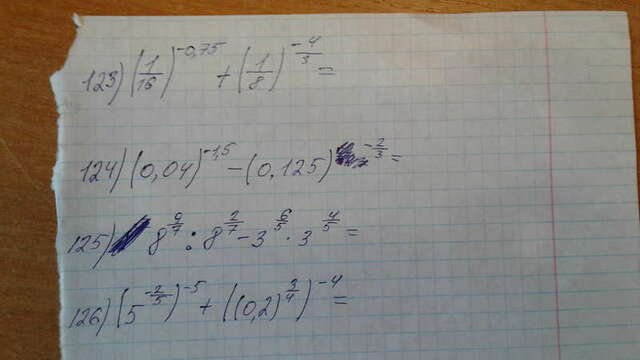 123) (1/16)^-0,75 + (1/8)^-4/3 =
124) (0,04)^-1,5 - (0,125)^-2/3 =
125) 8^9/7 : 8^2/7 - 3^6/5 · 3^4/5 =
126) (5^-2/5)^-5 + ((0,2)^3/4)^-4 =